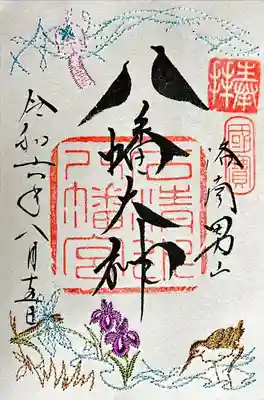 奉拝
國寳
洛南男山
八幡大神
石清水八幡宮
令和六年八月十五日